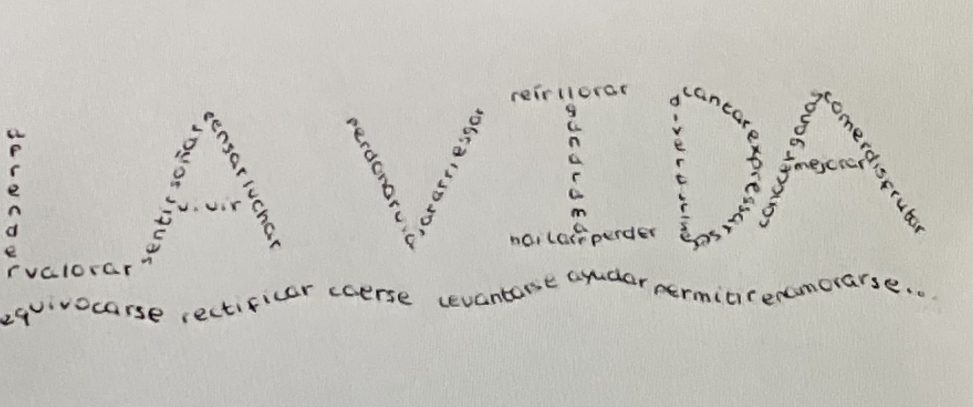 aprender valorar
sentir soñar
pensar luchar
vivir
perdonar
arriesgar
reír llorar
bailar perder
cantar expresar
reaccionar ganar
comer disfrutar
mejorar
equivocarse rectificar caerse levantarse ayudar permitir enamorarse...